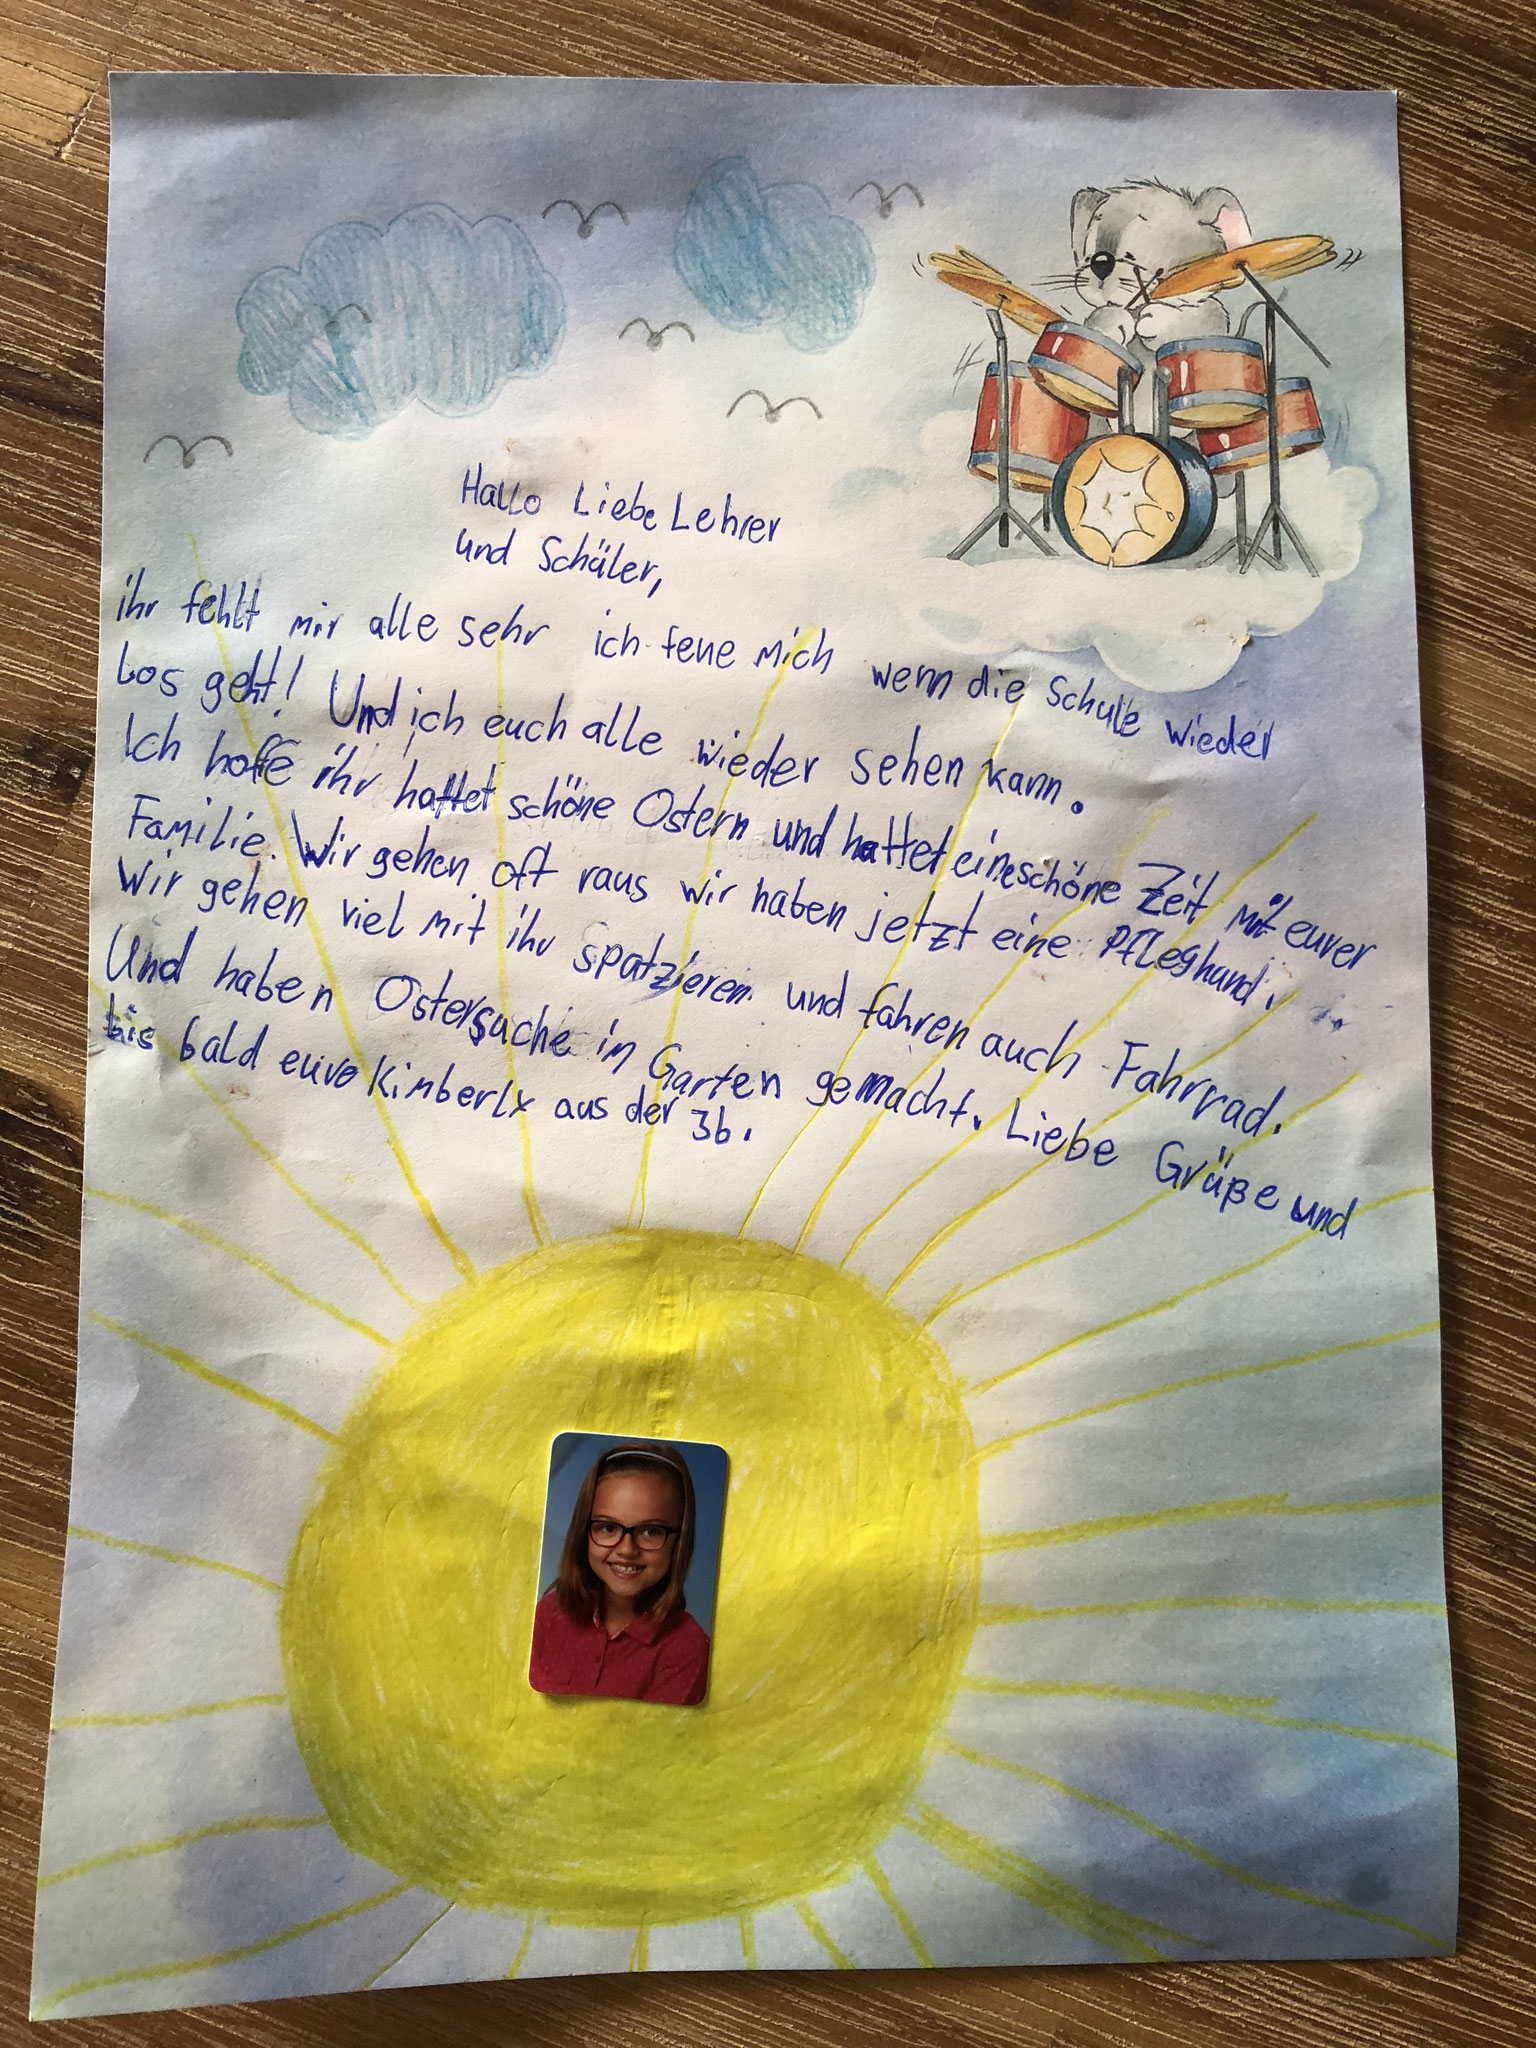 Hallo Liebe Lehrer
und Schäler,
ihr fehlt mir alle sehr ich feue mich wenn die Schule wieder
Los geht! Und ich euch alle wieder sehen kann.
Ich hoffe ihr hattet schöne Ostern und hattet eine schöne Zeit mit eurer
Familie. Wir gehen oft raus wir haben jetzt eine Pfleghund.
Wir gehen viel mit ihr spatzieren und fahren auch Fahrrad.
Und haben Ostersuche im Garten gemacht. Liebe Grüße und
bis bald eure Kimberly aus der 3b.